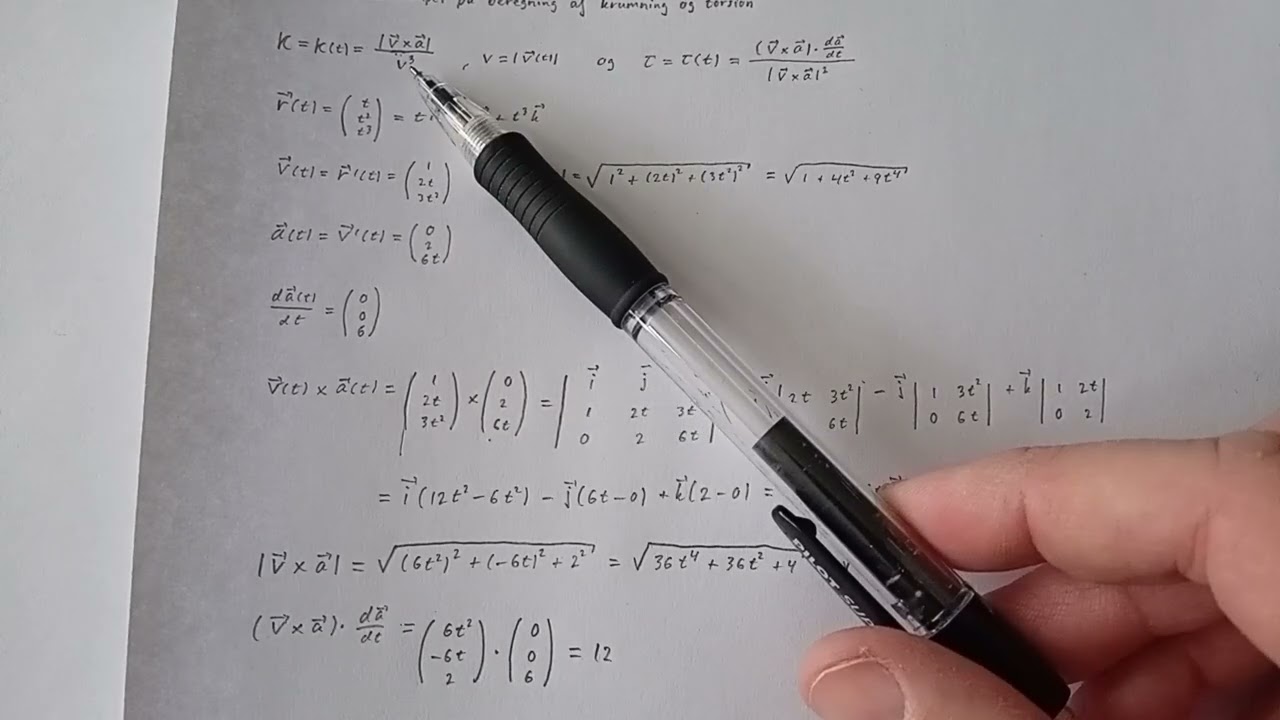 på beregning af krumning og torsion
K = K(t) = |v⃗ × a⃗| / v³ , v = |v⃗(t)| og τ = τ(t) = (v⃗ × a⃗) · da⃗/dt / |v⃗ × a⃗|²
r⃗(t) = (t t² t³) = t + t³ k⃗
v⃗(t) = r⃗'(t) = (1 2t 3t²) = √(1² + (2t)² + (3t²)²) = √(1 + 4t² + 9t⁴)
a⃗(t) = v⃗'(t) = (0 2 6t)
da⃗(t)/dt = (0 0 6)
v⃗(t) × a⃗(t) = (1 2t 3t²) × (0 2 6t) = |i⃗ j⃗ 1 2t 3t 0 2 6t| 2t 3t² 6t| - j⃗ |1 3t² 0 6t| + k⃗ |1 2t 0 2|
= i⃗(12t² - 6t²) - j⃗(6t - 0) + k⃗(2 - 0) =
|v⃗ × a⃗| = √((6t²)² + (-6t)² + 2²) = √(36t⁴ + 36t² + 4
(v⃗ × a⃗) · da⃗/dt = (6t² -6t 2) · (0 0 6) = 12
PILOT